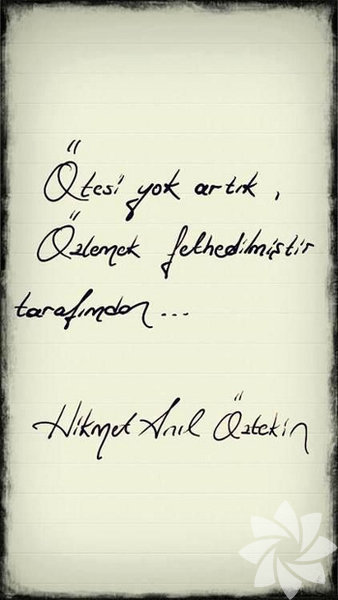 Ötesi yok artık,
Özlemek fethedilmiştir
tarafımdan...
Hikmet Anıl Öztekin